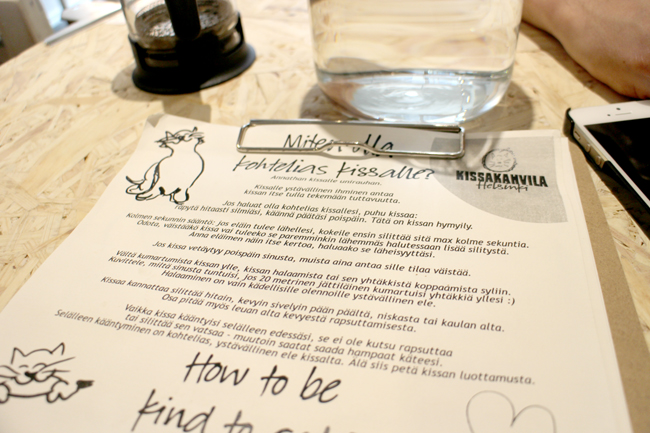 Miten olla
kohtelias kissalle?
KISSAKAHVILA
Helsinki
Annathan kissalle unirauhan.
Kissalle ystävällinen ihminen antaa
kissan itse tulla tekemään tuttavuutta.
Jos haluat olla kohtelias kissallesi, puhu kissaa:
räpytä hitaasti silmiäsi, käännä päätäsi poispäin. Tätä on kissan hymyily.
Kolmen sekunnin sääntö: jos eläin tulee lähellesi, kokeile ensin silittää sitä max kolme sekuntia.
Odota, väistääkö kissa vai tuleeko se paremminkin lähemmäs halutessaan lisää silitystä.
Anna eläimen näin itse kertoa, haluaako se läheisyyttäsi.
Jos kissa vetäytyy poispäin sinusta, muista aina antaa sille tilaa väistää.
Vältä kumartumista kissan ylle, kissan halaamista tai sen yhtäkkistä koppaamista syliin.
Kuvittele, miltä sinusta tuntuisi, jos 20 metrinen jättiläinen kumartuisi yhtäkkiä yllesi :)
Halaaminen on vain kädellisille olennoille ystävällinen ele.
Kissaa kannattaa silittää hitain, kevyin sivelyin pään päältä, niskasta tai kaulan alta.
Osa pitää myös leuan alta kevyestä rapsuttamisesta.
Vaikka kissa kääntyisi selälleen edessäsi, se ei ole kutsu rapsuttaa
tai silittää sen vatsaa - muutoin saatat saada hampaat käteesi.
Selälleen kääntyminen on kohtelias, ystävällinen ele kissalta. Älä siis petä kissan luottamusta.
How to be
kind to